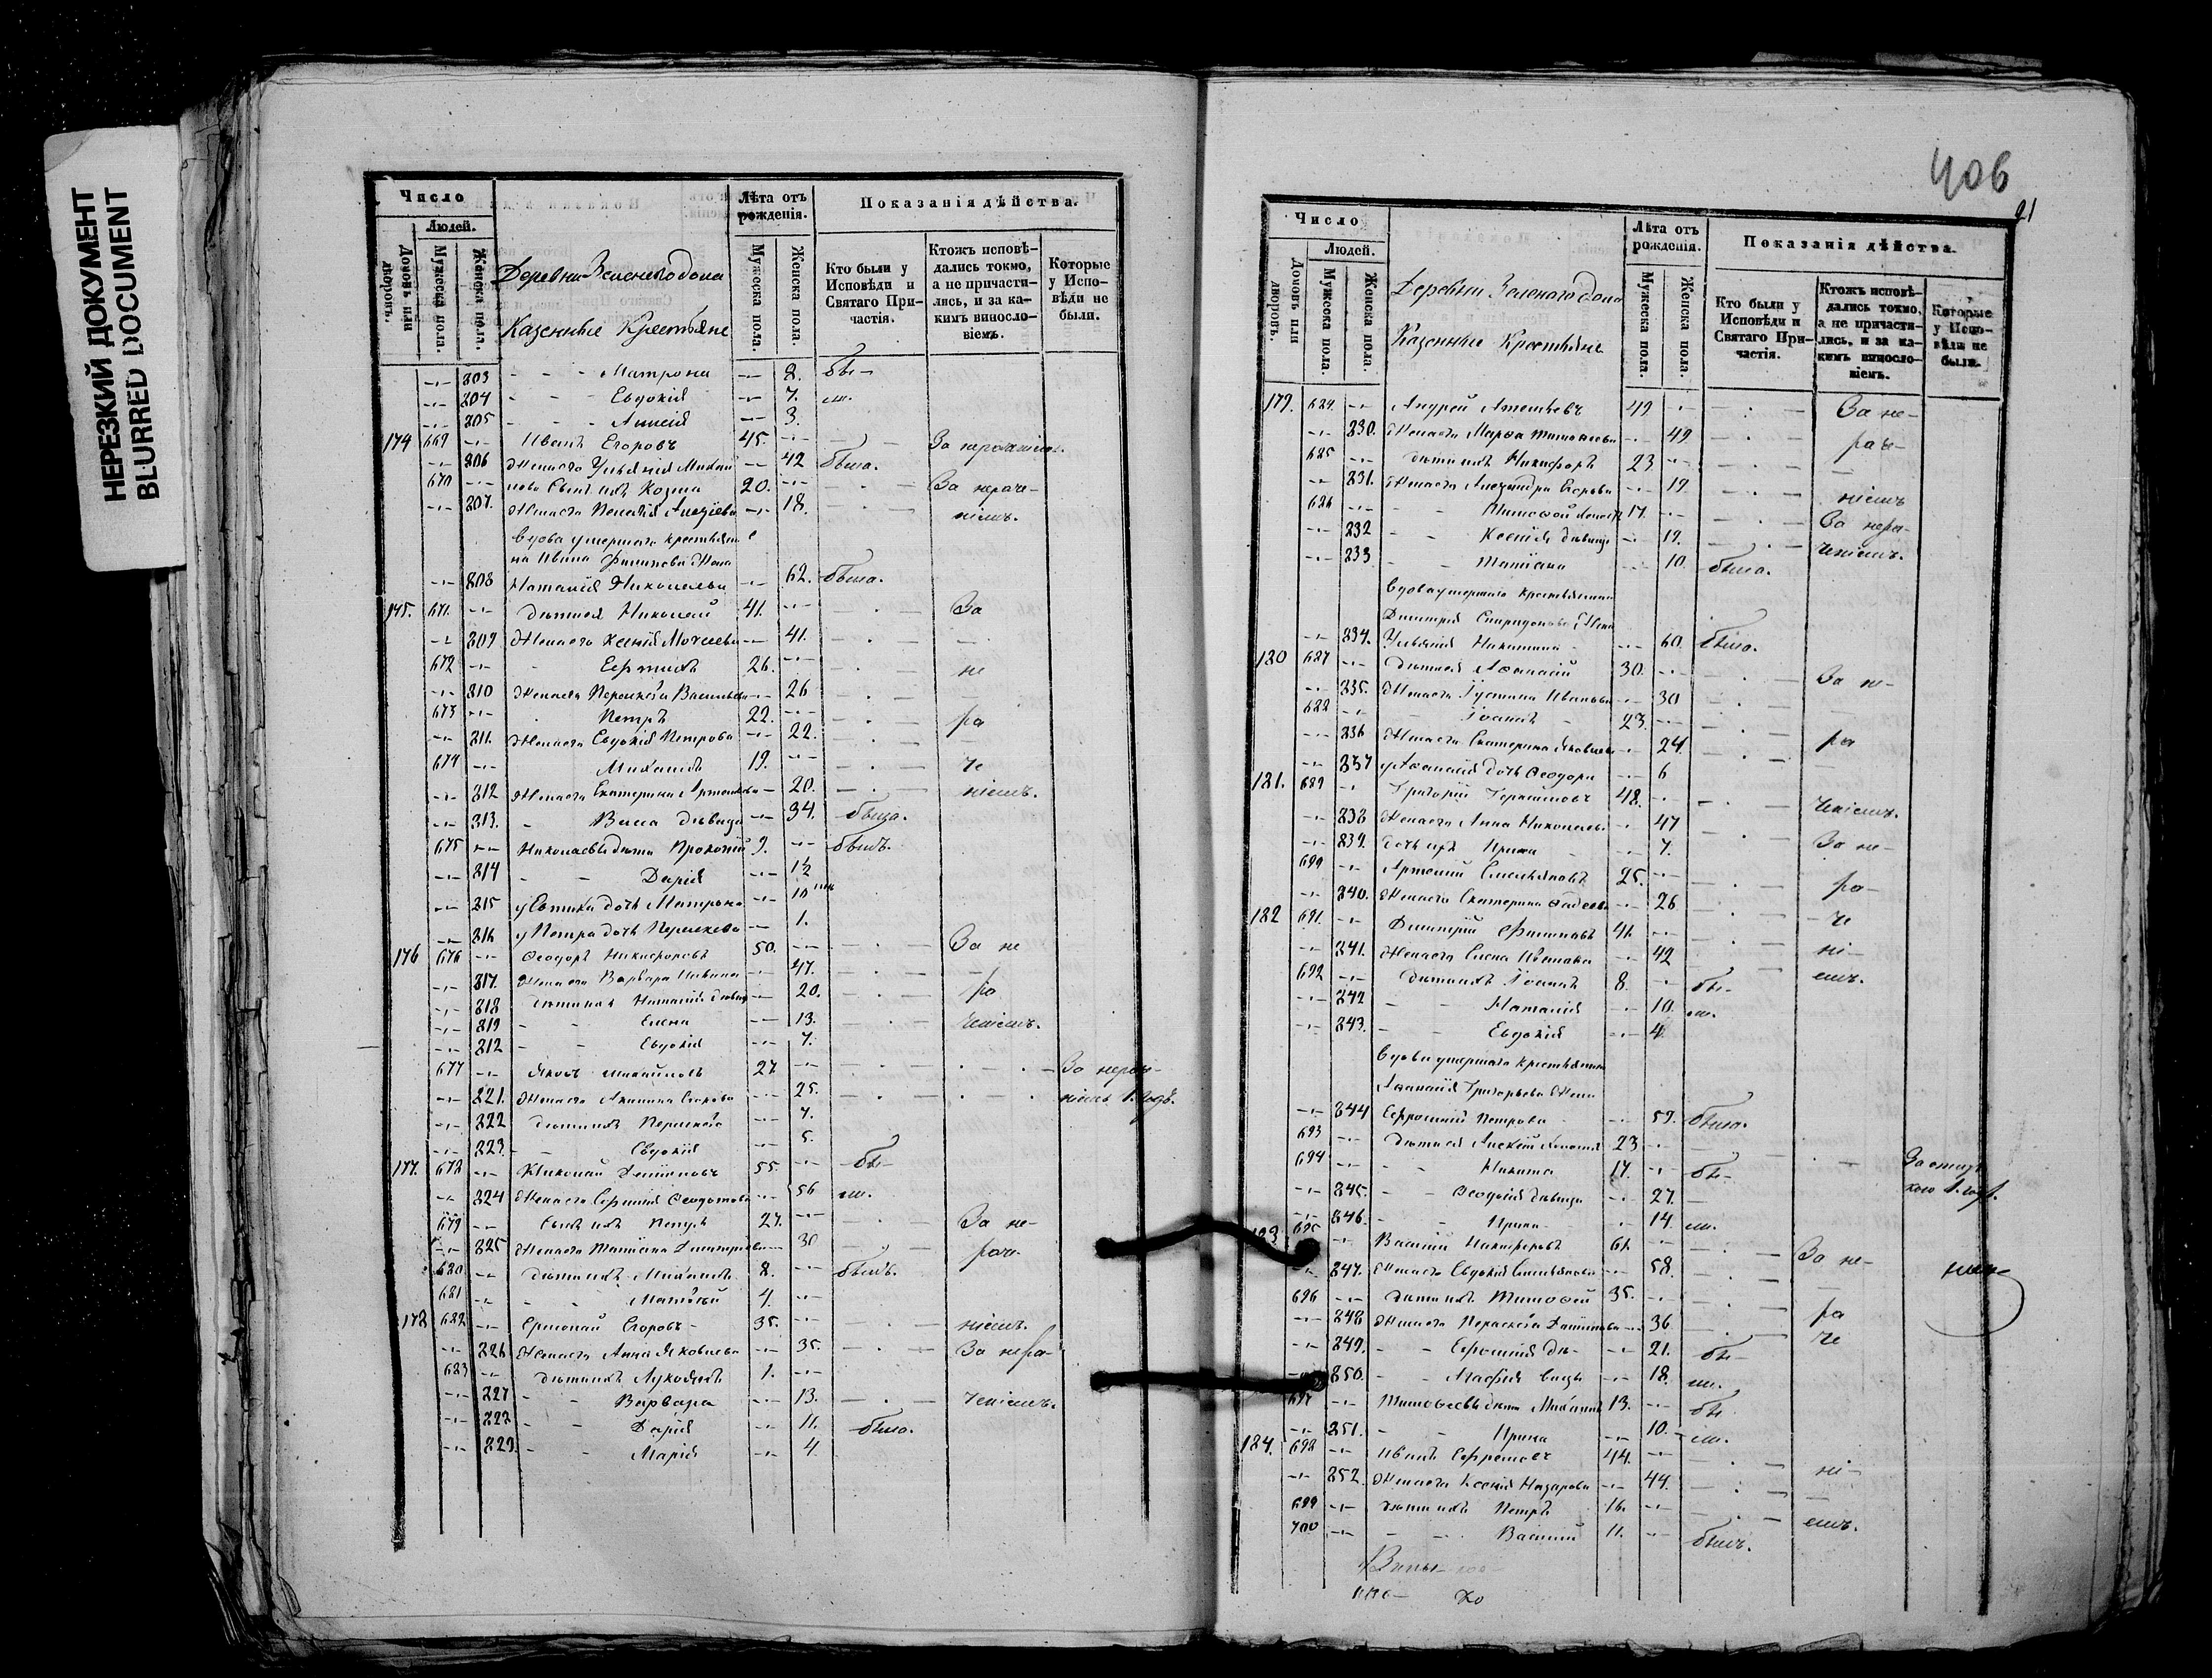 НЕРЕЗКИЙ ДОКУМЕНТ
BLURRED DOCUMENT
Число
Людей.
Домовъ или дворовъ.
Мужеска пола.
Женска пола.
Деревни Зеленого дола
Казенные Крестьяне
Лѣта отъ рожденія.
Мужеска пола.
Женска пола.
Показанія дѣйства.
Кто были у Исповѣди и Святаго Причастія.
Ктожъ исповѣдались токмо, а не причастились, и за какимъ винословіемъ.
Которые у Исповѣди не были.
803 Матрона 8. бы-
804 Евдокія 7. ли.
805 Анисія 3.
174 669 Иванъ Егоровъ 45. За нераченіемъ.
806 Жена его Ульянія Михай 42 была.
670 лова Сынъ ихъ Козма 20. За нераче-
807. Жена его Пелагія Алексіева 18. ніемъ.
Вдова умершаго крестьяни
на Ивана Филипова Жена
808 Наталія Николаева 62. была.
175. 671. Дѣти ея Николай 41. За
809 Жена его Ксенія Моисеева 41.
672 26. не
810 Жена его Параскева Васильева 26
673 Петръ 22. ра
811. Жена его Евдокія Петрова 22.
674 Михаилъ 19. че
812 Жена его Екатерина Артемьева 20. ніемъ.
813. Васса дѣвица 34. была.
675 Николаевы дѣти Прокопій 9. былъ.
814 Дарія 1½
815 дочь Матрона 10
816 у Петра дочь Параскева 1.
176 676 Ѳеодоръ Никифоровъ 50. За не
817. Жена его Варвара 47.
818 Дѣти ихъ Наталія дѣвица 20. ра
819 Елена 13. ченіемъ.
812 Евдокія 7.
677 Яковъ Михайловъ 27. За нераче-
821. Жена его Акилина Егорова 25. ніемъ 1. годъ.
822 Дѣти ихъ Параскева 7.
823. Евдокія 5.
177. 678 Николай 55. бы-
824 Жена его Ѳеодотова 56 ли.
679 Сынъ ихъ Петръ 27. За не-
825 Жена его Татіана Димитріева 30 раче-
680 Дѣти ихъ Михаилъ 8. былъ.
681 Матѳей 4.
178 682 Ермолай Егоровъ 35. ніемъ.
826 Жена его Анна Яковлева 35. За нера-
683 Дѣти ихъ Лукіянъ 1.
827 Варвара 13. ченіемъ.
828 Дарія 11. была.
829. Марія 4
406
91
Число
Людей.
Домовъ или дворовъ.
Мужеска пола.
Женска пола.
Деревни Зеленаго дола
Казенные Крестьяне
Лѣта отъ рожденія.
Мужеска пола.
Женска пола.
Показанія дѣйства.
Кто были у Исповѣди и Святаго Причастія.
Ктожъ исповѣдались токмо, а не причастились, и за какимъ винословіемъ.
Которые у Исповѣди не были.
179. 684. Андрей Артемьевъ 49 За не-
830. Жена его Марѳа 49 раче-
685 Дѣти ихъ Никифоръ 23
831. Жена его Александра Егорова 19. ніемъ
686 Тимоѳей 17. За нера-
832 Ксенія дѣвица 19. ченіемъ.
833 Татіана 10. была.
Вдова умершаго крестьянина
Димитрія Спиридонова Жена
834. Ульянія Никитина 60. была.
180 687 Дѣти ея Аѳанасій 30. За не-
835. Жена его Іустина Иванова 30
688 Іоаннъ 23.
836 Жена его Екатерина Яковлева 24. ра
837 у Аѳанасія дочь Ѳеодора 6
181. 689 Григорій 48. ченіемъ.
838 Жена его Анна Николаева 47
839. дочь ихъ Ирина 7. За не-
690 Артемій Емельяновъ 25. ра-
840. Жена его Екатерина Ѳадеева 26
182 691. Димитрій Филиповъ 41. че
841. Жена его Елена Иванова 42 ні-
692 Дѣти ихъ Іоаннъ 8. бы- емъ.
842 Наталія 10. ли.
843. Евдокія 4
Вдова умершаго крестьянина
Аѳанасія Григорьева Жена
844 Петрова 59. была.
693 Дѣти ея Алексій 23
694 Никита 17. бы- За отлуч-
845. Ѳеодосія дѣвица 27. кою 1. годъ.
846. Ирина 14. ли.
183 695 Василій Никифоровъ 61. За не-
847. Жена его Евдокія Емельянова 58.
696 Дѣти ихъ Тимоѳей 35.
848 Жена его Параскева 36 ра
849. дѣ- 21. бы- че
850. вицы 18. ли.
697 Тимоѳеевы дѣти Михаилъ 13. бы
851. Ирина 10. ли.
184. 698 Иванъ Ефремовъ 44. ні-
852. Жена его Ксенія Назарова 44.
699 Дѣти ихъ Петръ 16. емъ.
700 Василій 11. былъ.